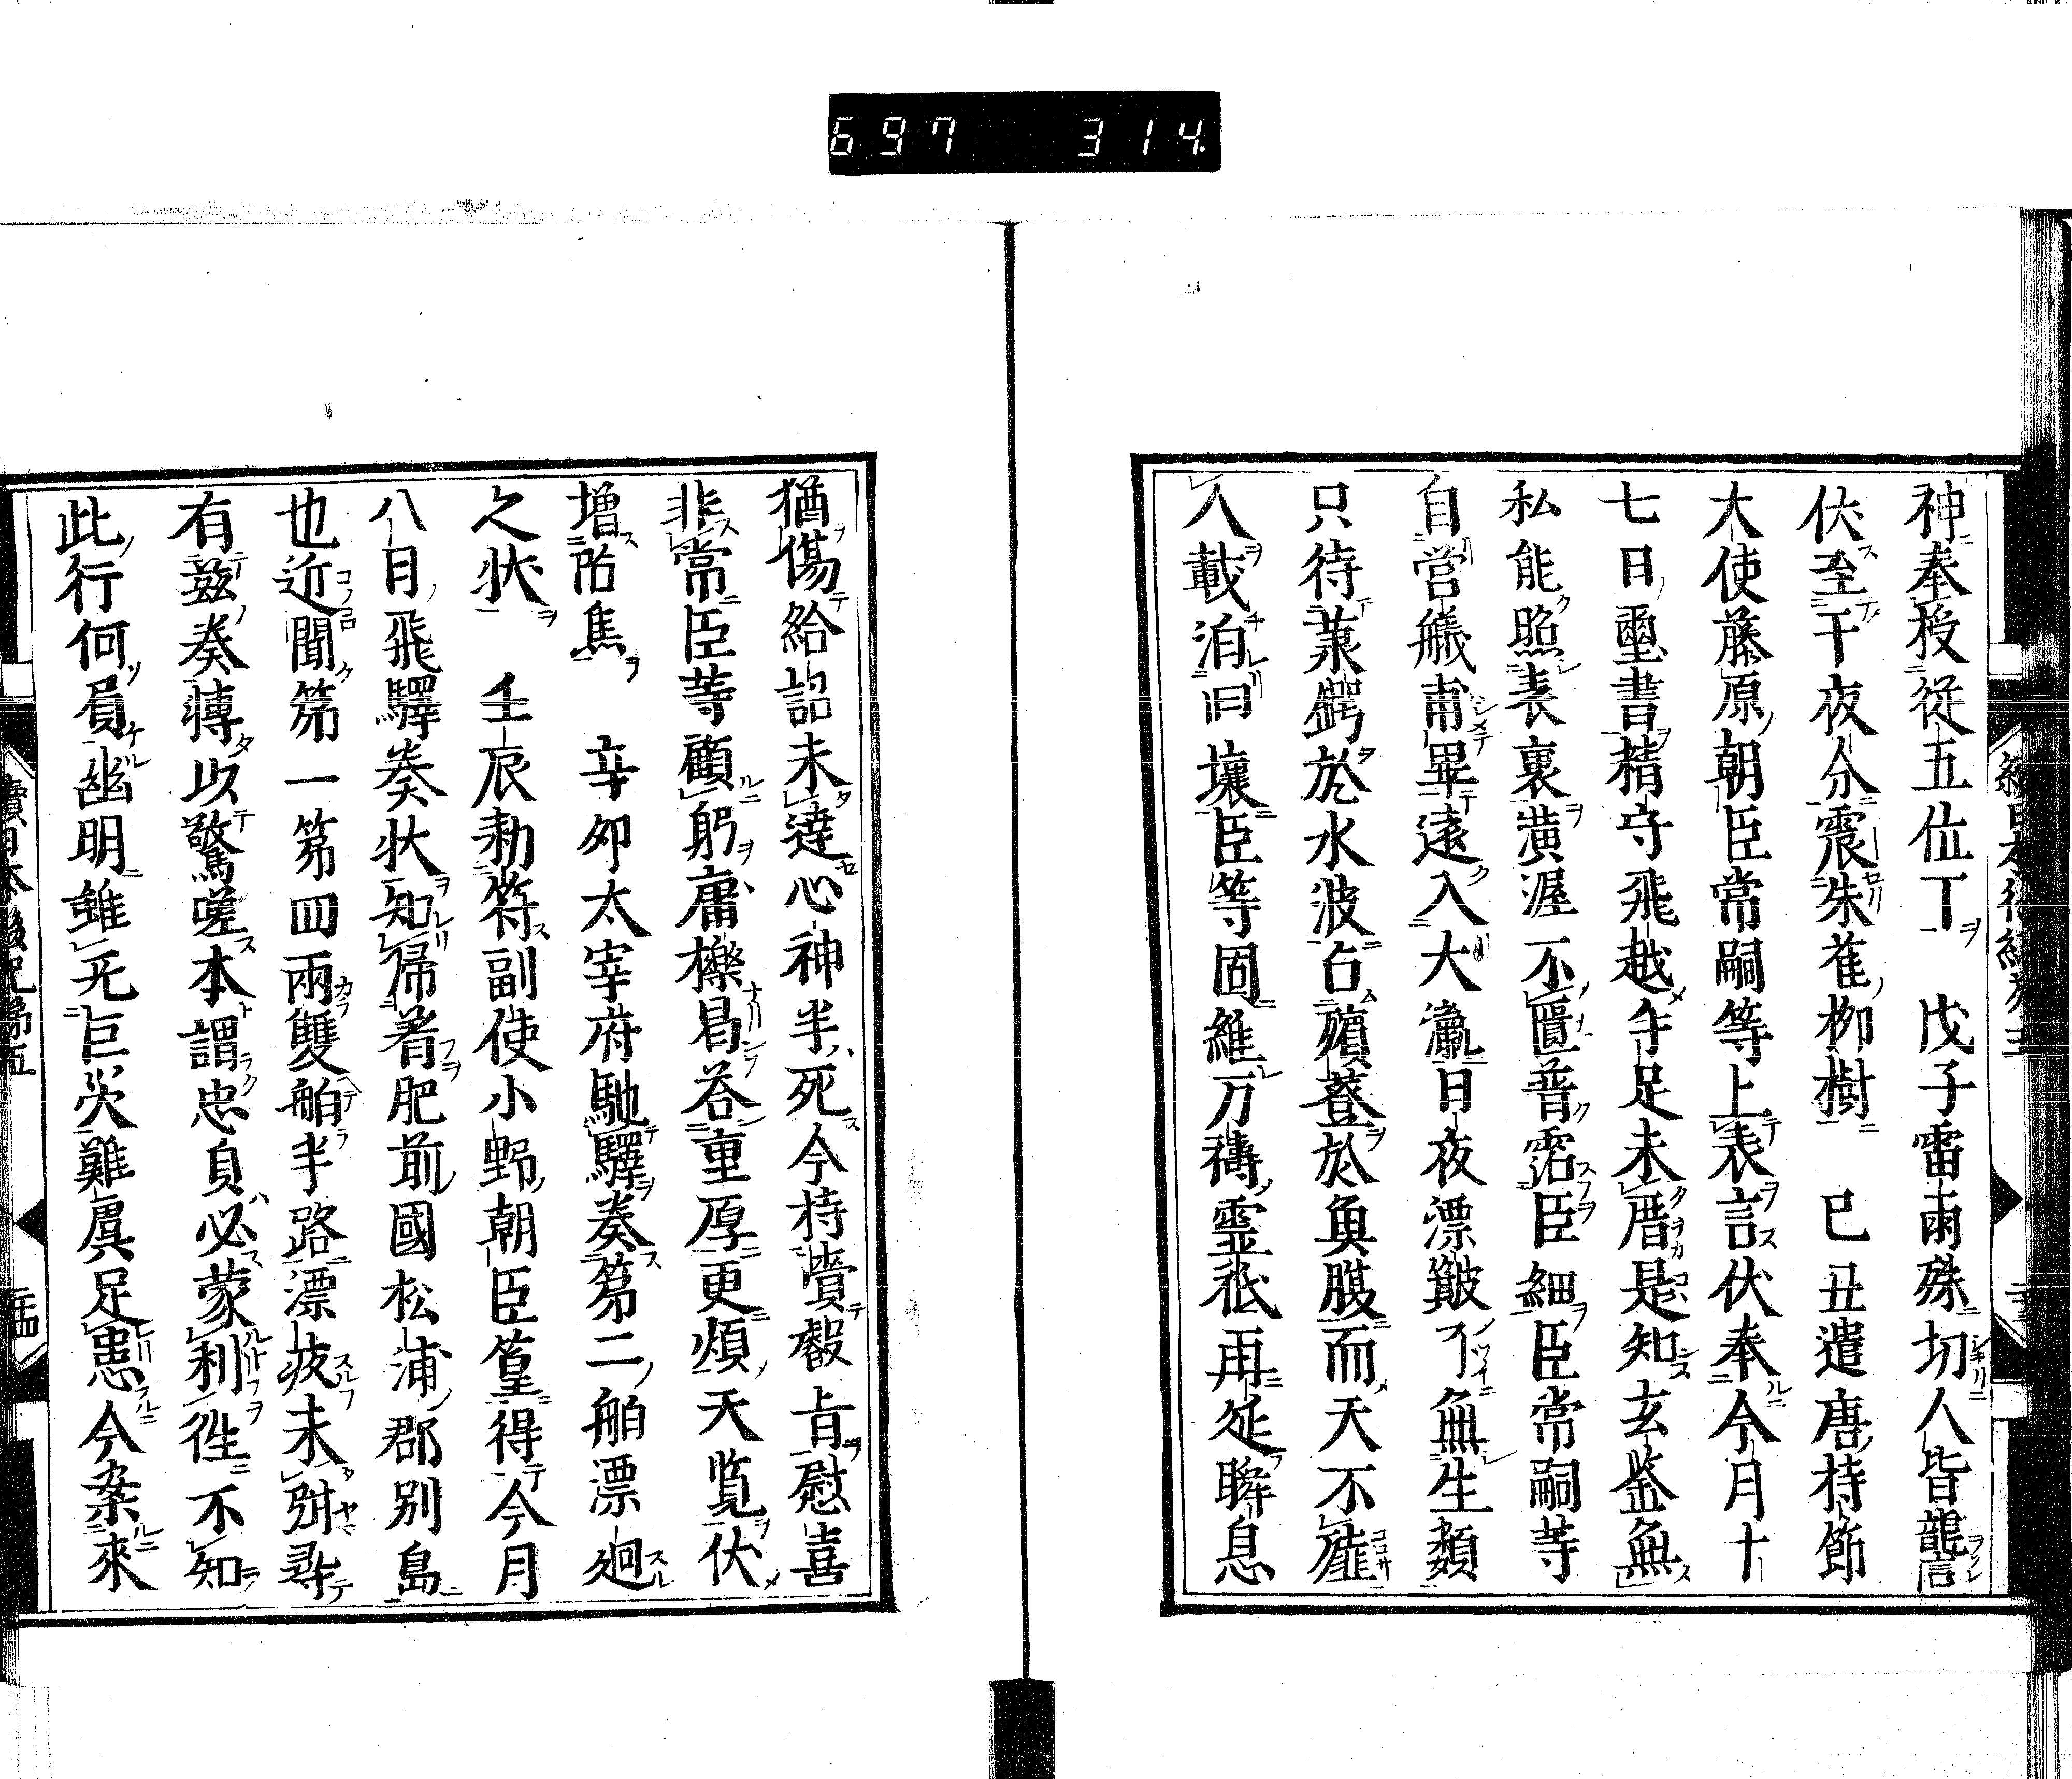 697 314
神奉授從五位下 戊子雷雨殊切人皆讋
伏至于夜分震朱雀柳樹 己丑遣唐持節
大使藤原朝臣常嗣等上表言伏奉今月十
七日璽書精守飛越手足未厝是知玄鑒無
私能照表裏潢渥不匱普霑臣細臣常嗣等
自営艤甫畢遠入大瀛日夜漂簸了無生類
只待葅齶於水波台殯薹於魚腹而天不
人載泊旧壤臣等固維万禱霊祇再延眸息
猶傷給詔未達心神半死今持賷叡旨慰喜
非常臣等顧躬庸櫟曷荅重厚更煩天覧伏
増貽焦 辛卯太宰府馳驛奏第二舶漂廻
之状 壬辰勅符副使小野朝臣篁得今月
八日飛驛奏状知帰着肥前國松浦郡別島
也近聞第一第四兩雙舶半路漂疲未弭尋
有茲奏慱以驚嗟本謂忠貞必蒙利徃不知
此行何負幽明雖无巨灾難虞足患今案來
續日本後紀卷五
續日本後紀第五